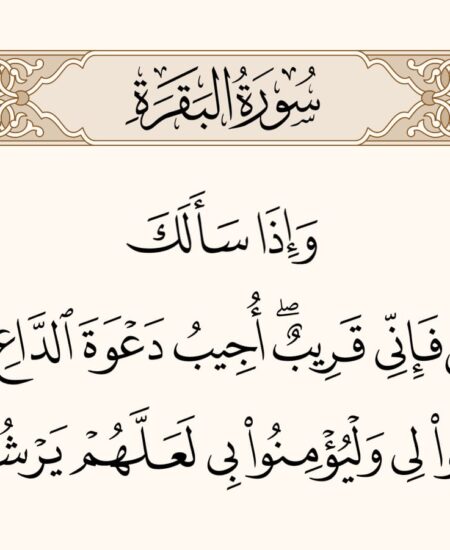 سُورَةُ البَقَرَةِ
وَإِذَا سَأَلَكَ
فَإِنِّي قَرِيبٌ ۖ أُجِيبُ دَعْوَةَ ٱلدَّاعِ
لِي وَلْيُؤْمِنُوا۟ بِي لَعَلَّهُمْ